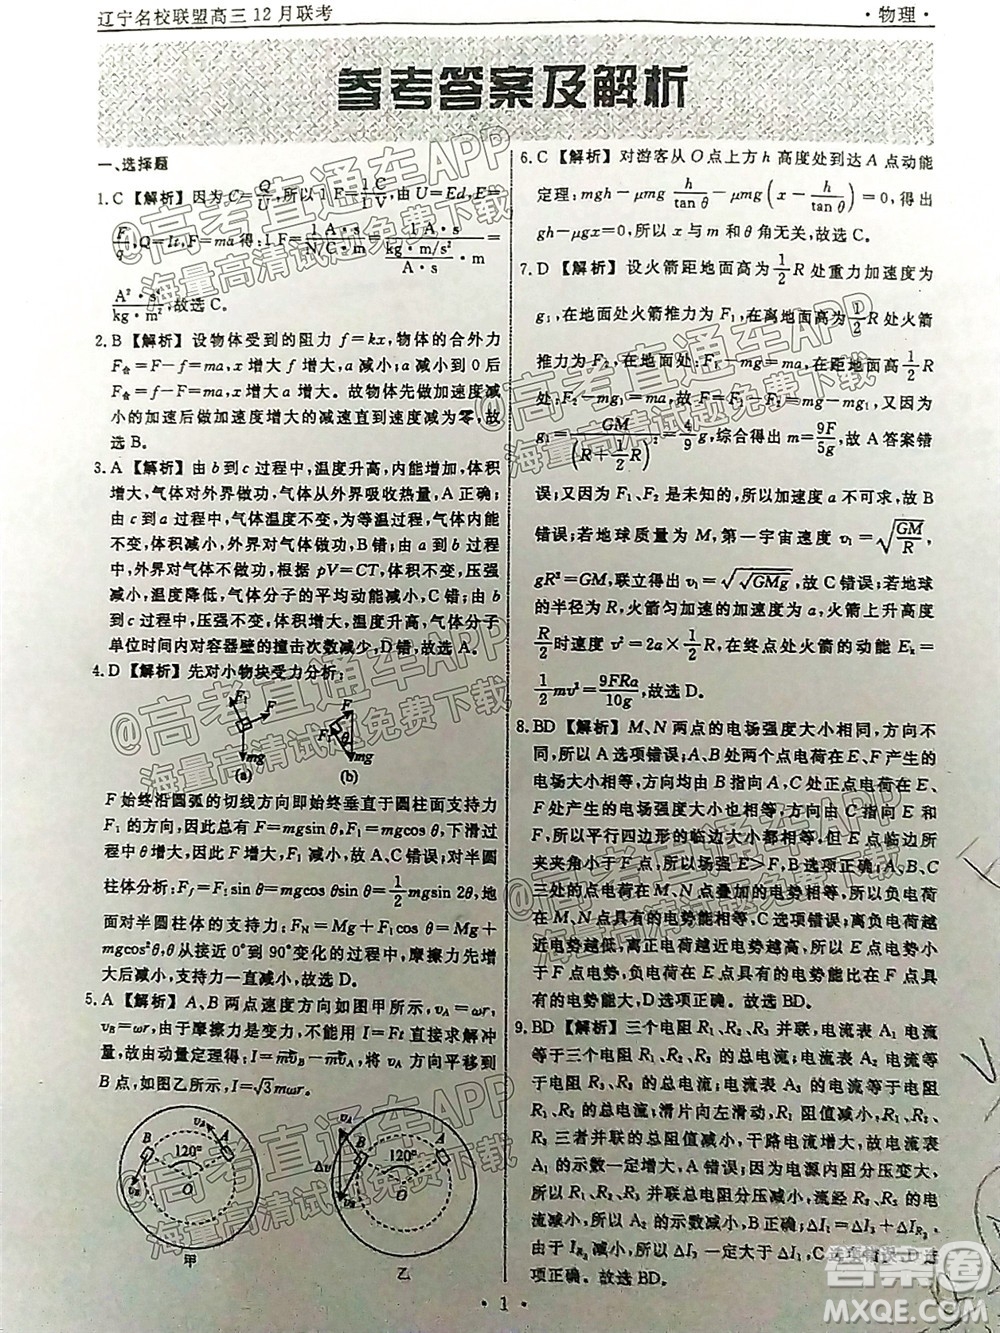 辽宁名校联盟高三12月联考
·物理·
参考答案及解析
一、选择题
1.C 【解析】因为C=Q/U,所以1 F=1 C/1 V,由U=Ed,E=
F/q,Q=It,F=ma得:1 F=1 A·s/(N/C·m)=1 A·s/(kg·m/s²/(A·s)·m)=
A²·s⁴/(kg·m²),故选C。
2.B 【解析】设物体受到的阻力f=kx,物体的合外力
F合=F-f=ma,x增大f增大a减小;a减小到0后
F合=f-F=ma,x增大a增大。故物体先做加速度减
小的加速后做加速度增大的减速直到速度为零,故
选B。
3.A 【解析】由b到c过程中,温度升高,内能增加,体积
增大,气体对外界做功,气体从外界吸收热量,A正确;
由c到a过程中,气体温度不变,为等温过程,气体内能
不变,体积减小,外界对气体做功,B错;由a到b过程
中,体积不变,气体不做功,根据pV=CT,体积不变,压强
减小,温度降低,气体分子的平均动能减小,C错;由c到
b过程中,温度降低,体积增大,压强减小,气体分子
单位时间内对容器壁的撞击次数减少,D错,故选A。
4.D 【解析】先对小物块受力分析:
F₁
F
mg
(a)
F
F₁
mg
(b)
F始终沿圆弧的切线方向即始终垂直于圆柱面支持力
F₁的方向,因此总有F=mgsin θ,F₁=mgcos θ,下滑过
程中θ增大,因此F增大,F₁减小,故A、C错误;对半圆
柱体分析:Ff=F₁sin θ=mgcos θsin θ=1/2mgsin 2θ,地
面对半圆柱体的支持力:FN=Mg+F₁cos θ=Mg+
mgcos²θ,θ从接近0°到90°变化的过程,摩擦力先增
大后减小,支持力一直减小,故选D。
5.A 【解析】A、B两点速度方向如图甲所示,vA=ωr,
vB=ωr,由于摩擦力是变力,不能用I=Ft直接求解冲
量,由动量定理得:I=mvB-mvA,将vA方向平移到
B点,如图乙所示,I=√3mωr。
B
A
vA
vB
120°
O
甲
vA
B
A
Δv
vB
120°
O
乙
6.C 【解析】对游客从O点上方h高度处到达A点动能
定理:mgh-μmg h/tan θ-μmg(x-h/tan θ)=0,得出:
gh-μgx=0,所以x与m和θ角无关,故选C。
7.D 【解析】设火箭距地面高为1/2R处重力加速度为
g₁,在地面处火箭推力为F₁,在离地面高为1/2R处火箭
推力为F₂,在地面处:F₁-mg=ma,在距地面高1/2R
处:F₂-mg₁=ma,故F=F₁-F₂=mg-mg₁,又因为
g₁=GM/(R+1/2R)²=4/9g,综合得出m=9F/5g,故A答案错
误;又因为F₁、F₂是未知的,所以加速度a不可求,故B
错误;若地球质量为M,第一宇宙速度v₁=√(GM/R),
gR²=GM,联立得出v₁=√(√(GMg)),故C错误;若地球
的半径为R,火箭匀加速的加速度为a,火箭上升高度
R/2时速度v²=2a×1/2R,终点处火箭的动能Ek=
1/2mv²=9FRa/10g,故选D。
8.BD 【解析】M、N两点的电场强度大小相同,方向不
同,所以A选项错误;A、C处两个点电荷在E、F产生的
电场大小相等,方向都是由B指向A,C处正点电荷在E、
F的电场强度大小也相等,方向由C指向E和由C指向
F,所以平行四边形的临边大小都相等。但E点临边所
夹夹角小于F点,所以场强E>F,B选项正确;A、B、C
三处的点电荷在M、N点叠加的电势相等,所以负电荷
在M、N点具有的电势能相等,C选项错误;离负电荷越
近电势越低,离正电荷越近电势越高,所以E点电势小于
F点电势,负点电荷在E点具有的电势能比F点具有
的电势能大,D选项正确。故选BD。
9.BD 【解析】三个电阻R₁、R₂、R₃并联,电流表A₁电流
等于三个电阻R₁、R₂、R₃的总电流;电流表A₂电流等
于电阻R₂、R₃的总电流;电流表A₃的电流等于电阻
R₃的电流;滑片向左滑动,R₁阻值减小,则R₁、R₂、
R₃三者并联的总阻值减小,干路电流增大,故电流表
A₁的示数一定增大,A错误;因电源内阻分压变大,
所以R₁、R₂、R₃并联总电阻分压减小,流经R₂的电
流减小,流经R₃的电流减小,所以ΔI₁=ΔI₂+ΔIR₁,
由于IR₃减小,所以ΔI₂一定大于ΔI₁,C选项错误,D选
项正确。故选BD。
·1·
@高考直通车APP
海量高清试题免费下载
@高考直通车APP
海量高清试题免费下载
@高考直通车APP
海量高清试题免费下载
@高考直通车APP
海量高清试题免费下载
@高考直通车APP
海量高清试题免费下载
答案圈
MXQE.COM